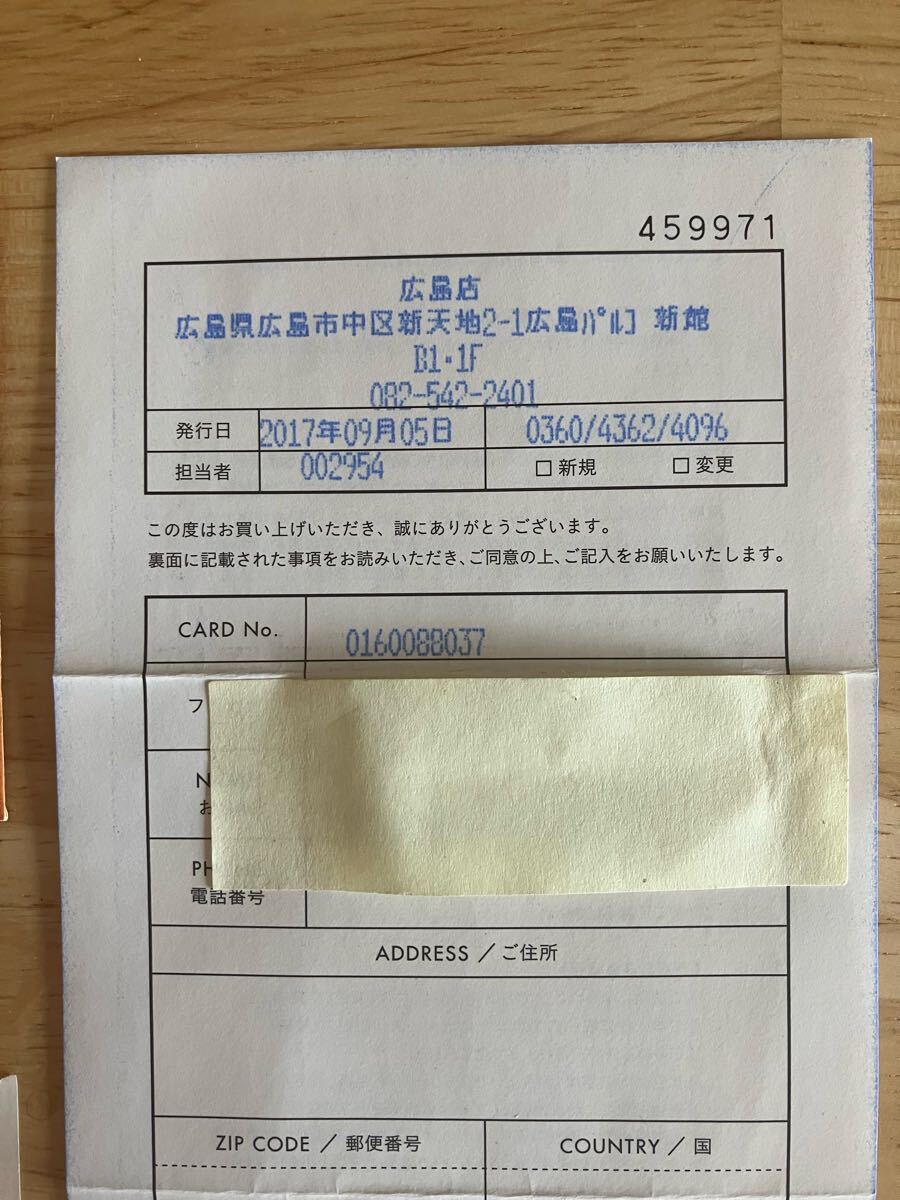 459971
広島店
広島県広島市中区新天地2-1広島ﾊﾟﾙｺ 新館
B1・1F
082-542-2401
発行日 2017年09月05日 0360/4362/4096
担当者 002954 □ 新規 □ 変更
この度はお買い上げいただき、誠にありがとうございます。
裏面に記載された事項をお読みいただき、ご同意の上、ご記入をお願いいたします。
CARD No. 0160088037
フ
N
お
PH
電話番号
ADDRESS / ご住所
ZIP CODE / 郵便番号 COUNTRY / 国